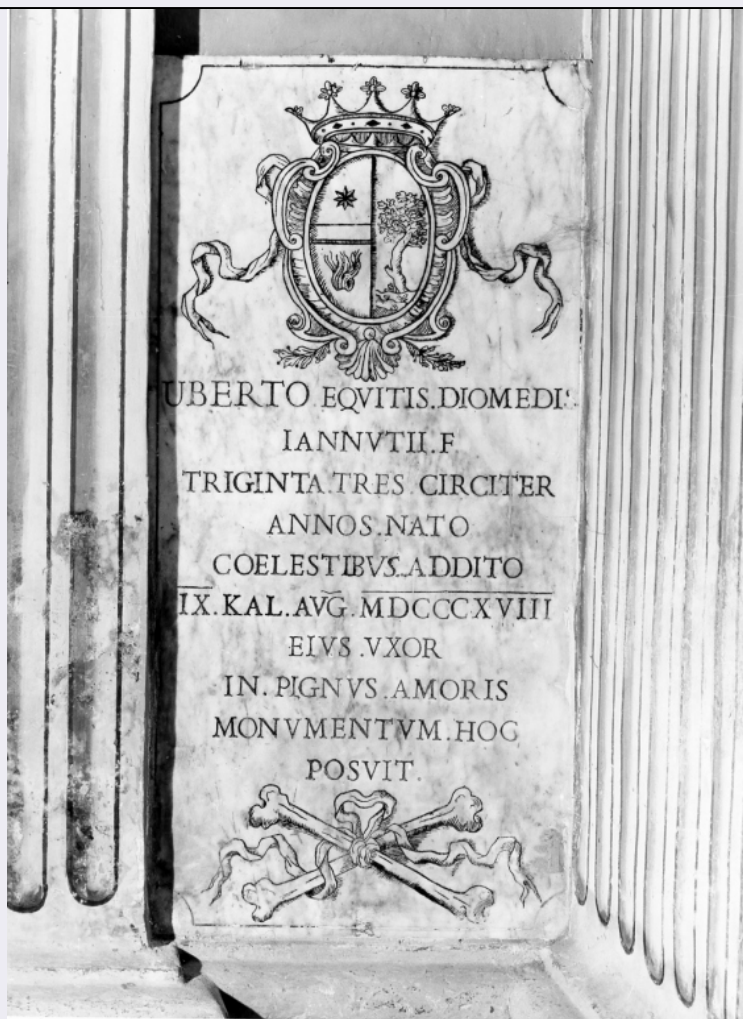 UBERTO EQVITIS.DIOMEDIS
IANNVTII.F
TRIGINTA.TRES CIRCITER
ANNOS.NATO
COELESTIBVS.ADDITO
IX.KAL.AVG.MDCCCXVIII
EIVS.VXOR
IN.PIGNVS.AMORIS
MONVMENTVM.HOC
POSVIT.